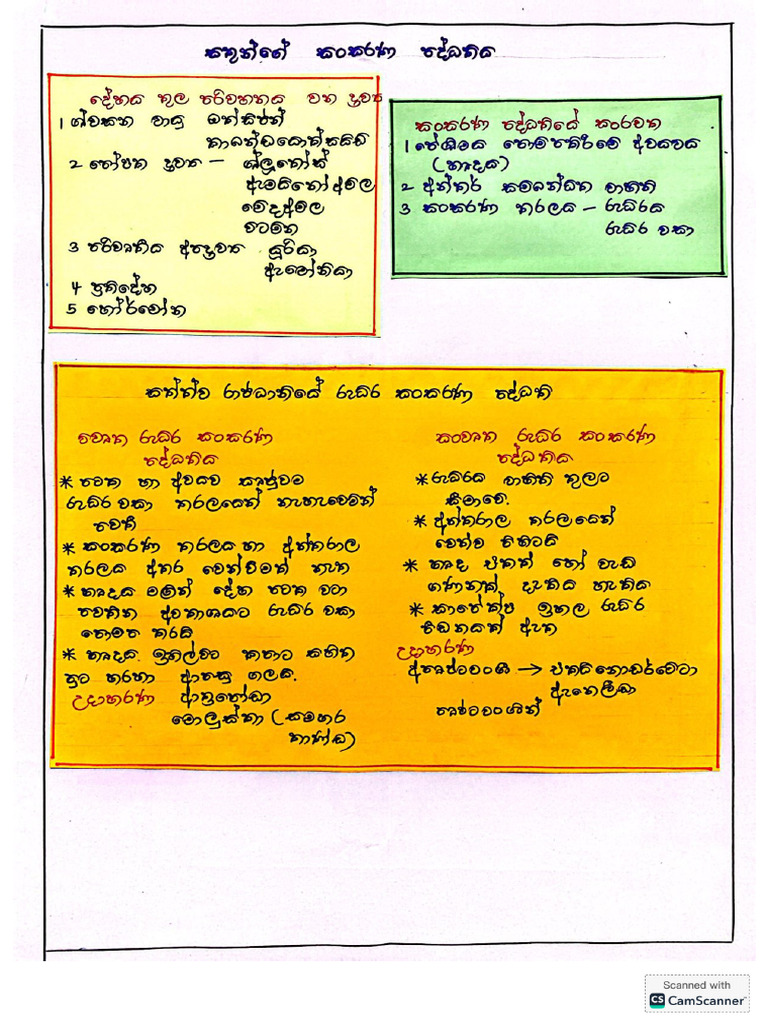 සතුන්ගේ සංසරණ පද්ධතිය
දේහය තුල පරිවහනය වන ද්‍රව්‍ය
1 ශ්වසන වායු ඔක්සිජන්
කාබන්ඩයොක්සයිඩ්
2 පෝෂක ද්‍රව්‍ය – ග්ලූකෝස්
ඇමයිනෝ අම්ල
මේදඅම්ල
විටමින
3 පරිවෘතිය අපද්‍රව්‍ය යූරියා
ඇමෝනියා
4 ප්‍රතිදේහ
5 හෝර්මෝන
සංසරණ පද්ධතියේ සංරචක
1 පේශිමය පොම්පකිරීමේ අවයවය
(හෘදය)
2 අන්තර් සම්බන්ධිත වාහිනි
3 සංසරණ තරලය – රුධිරය
රුධිර වසා
සත්ත්ව රාජධානියේ රුධිර සංසරණ පද්ධති
විවෘත රුධිර සංසරණ
පද්ධතිය
* පටක හා අවයව ඍජුවම
රුධිර වසා තරලයෙන් නැහැවෙමින්
පවතී
* සංසරණ තරලය හා අන්තරාල
තරලය අතර වෙන්වීමක් නැත
* හෘදය මගින් දේහ පටක වටා
පවතින අවකාශයට රුධිර වසා
පොම්ප කරයි
* හෘදය ඉහිල්වට කපාට සහිත
පුට හරහා ආපසු ගලයි.
උදාහරණ ආත්‍රපෝඩා
මොලුස්කා (සමහර
කාණ්ඩ)
සංවෘත රුධිර සංසරණ
පද්ධතිය
* රුධිරය වාහිනි තුලට
සීමාවේ.
* අන්තරාල තරලයෙන්
වෙන්ව පිහිටයි
* හෘද එකක් හෝ වැඩි
ගණනක් දැකිය හැකිය
* සාපේක්ෂ ඉහල රුධිර
පීඩනයක් ඇත
උදාහරණ
අපෘෂ්ටවංශී → එකයිනොඩර්මේටා
ඇනෙලීඩා
පෘෂ්ටවංශීන්
Scanned with
CS CamScanner